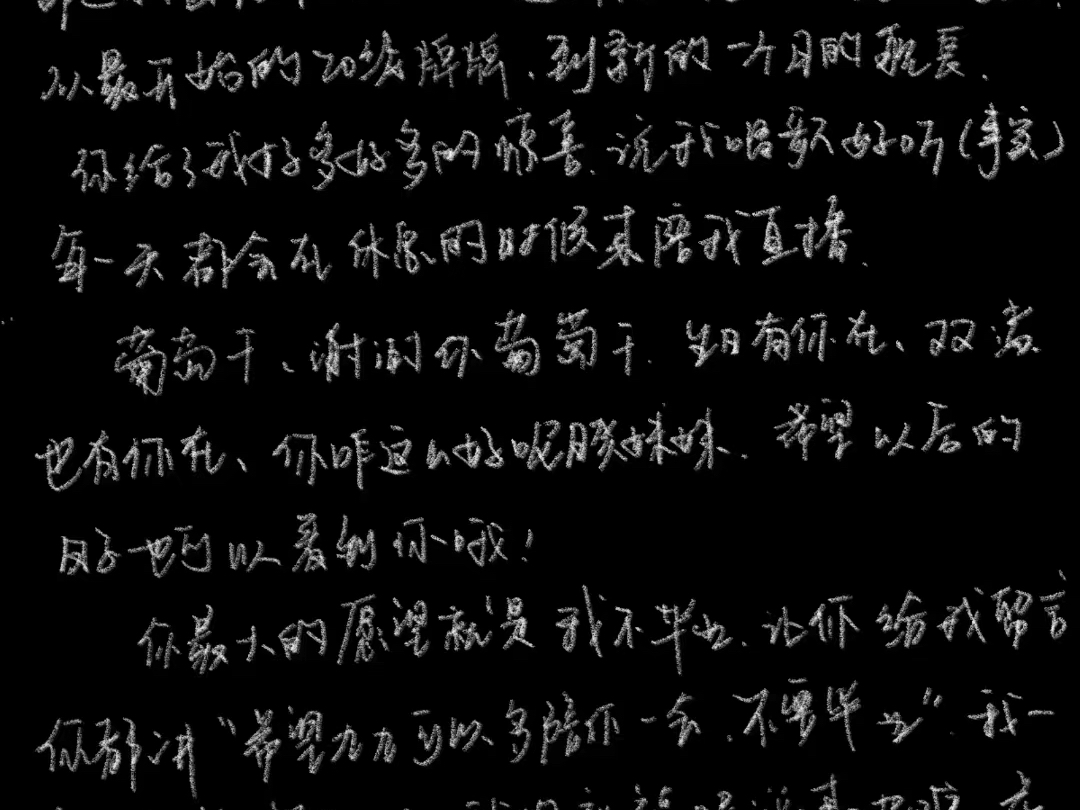 从最开始的20级牌牌、到新的一个月的舰长、
你给了我好多好多的惊喜、说我唱歌好听(事实)
每一天都会在休息的时候来陪我直播、
葡萄干、谢谢你葡萄干、生日有你在、双蛋
也有你在、你咋这么好呢胖妹妹、希望以后的
日子也可以看到你哦!
你最大的愿望就是我不毕业、让你给我留言
你都讲“希望九九可以多陪你一会、不要毕业”、我一